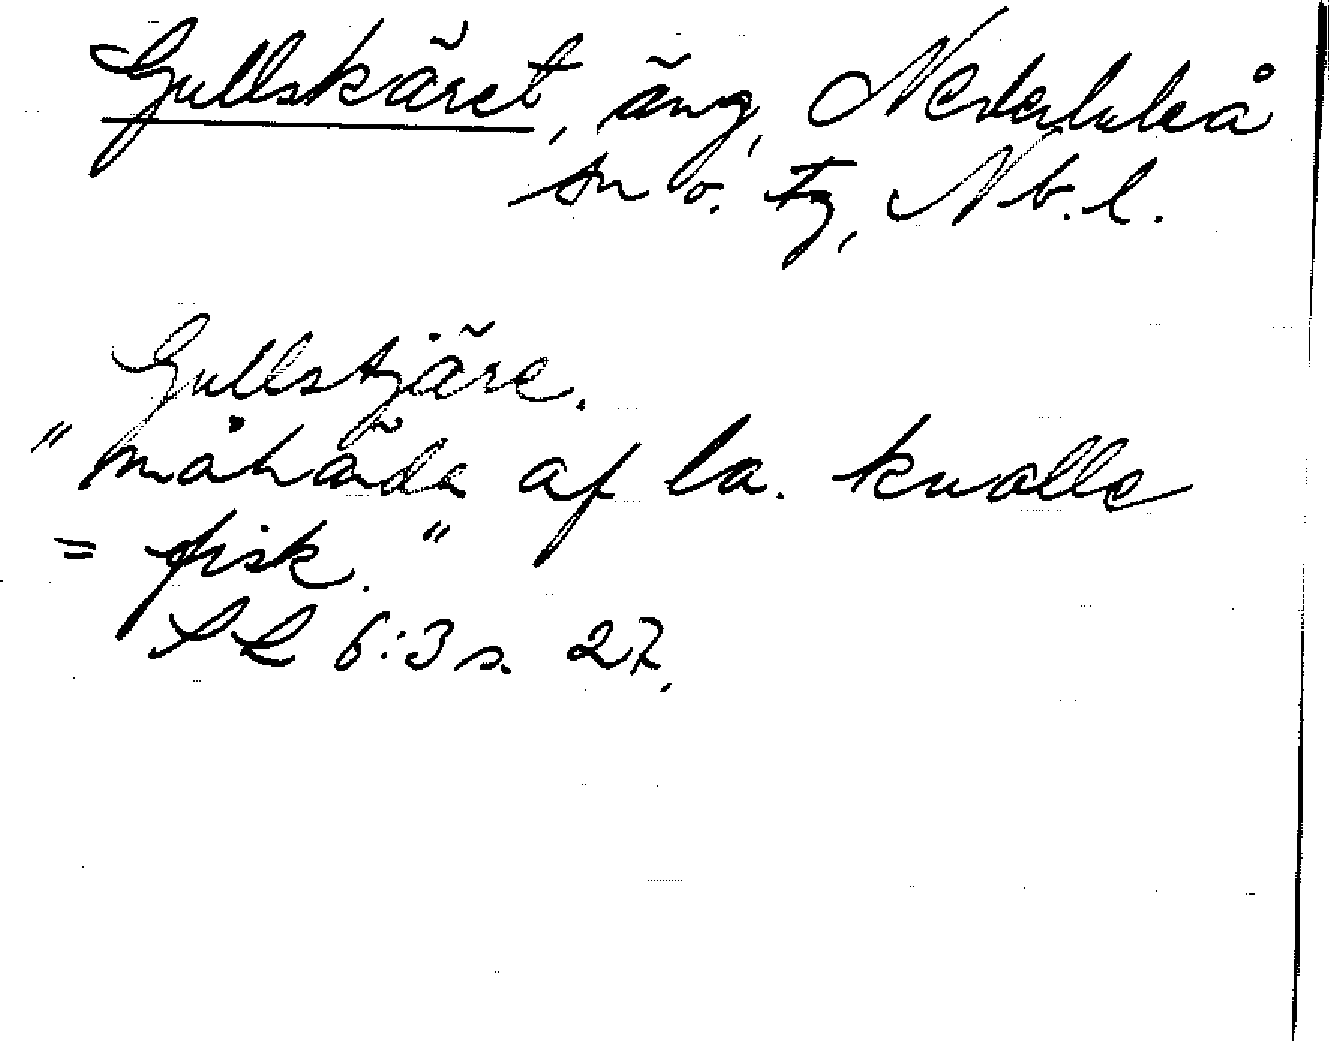 Gullskäret, äng, Nederluleå
sn o. tg, Nb.l.
Gullstjäre.
"måhända af la. kualle
= fisk."
SL 6:3 s. 27.